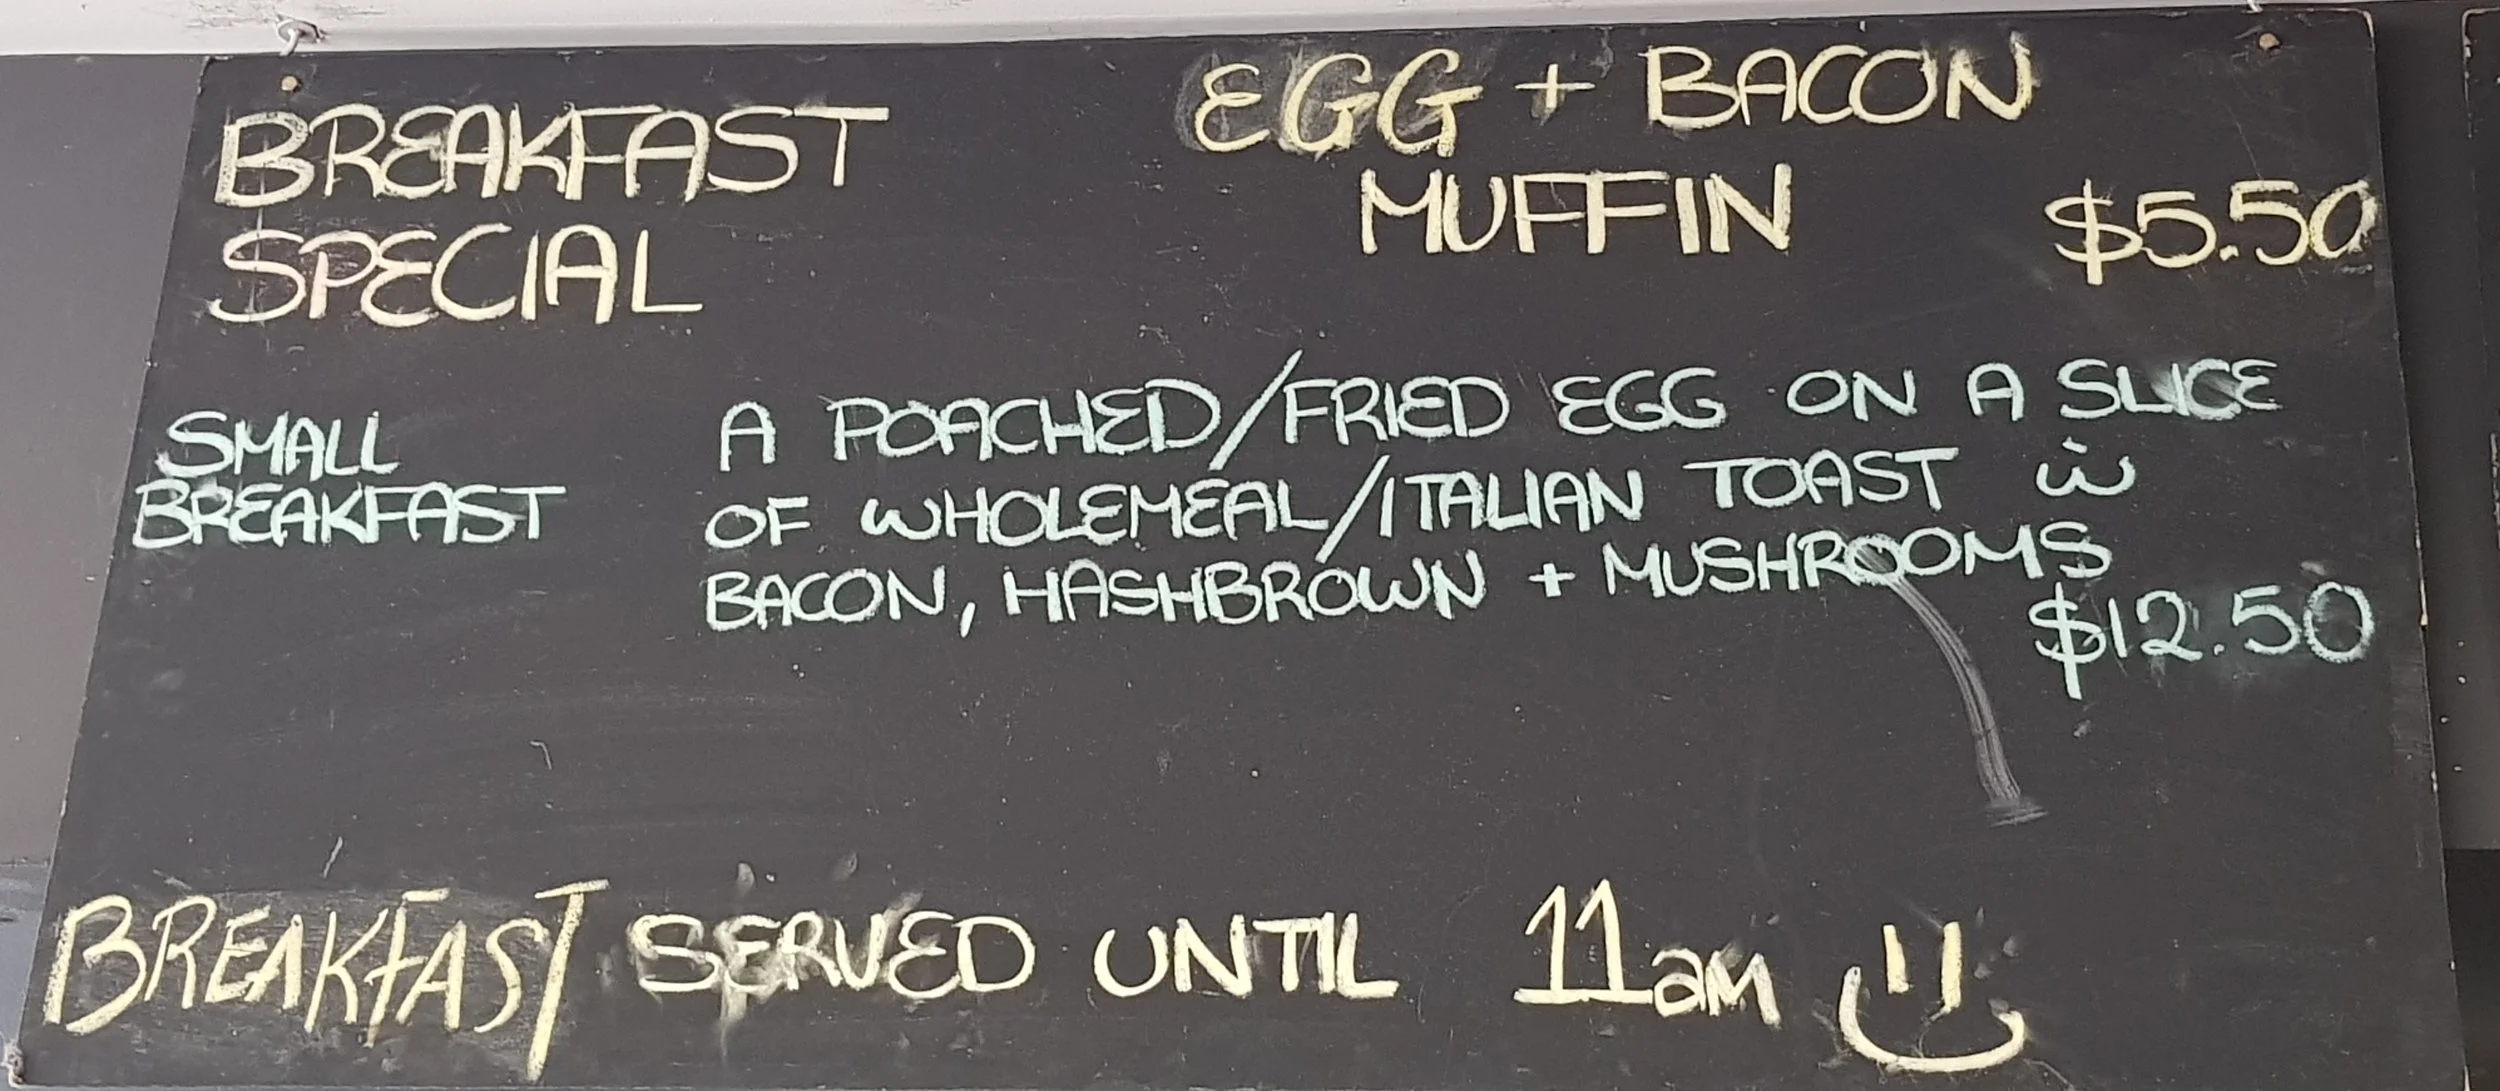 BREAKFAST
SPECIAL
EGG + BACON
MUFFIN
$5.50
SMALL
BREAKFAST
A POACHED/FRIED EGG ON A SLICE
OF WHOLEMEAL/ITALIAN TOAST ẇ
BACON, HASHBROWN + MUSHROOMS
$12.50
BREAKFAST SERVED UNTIL 11am